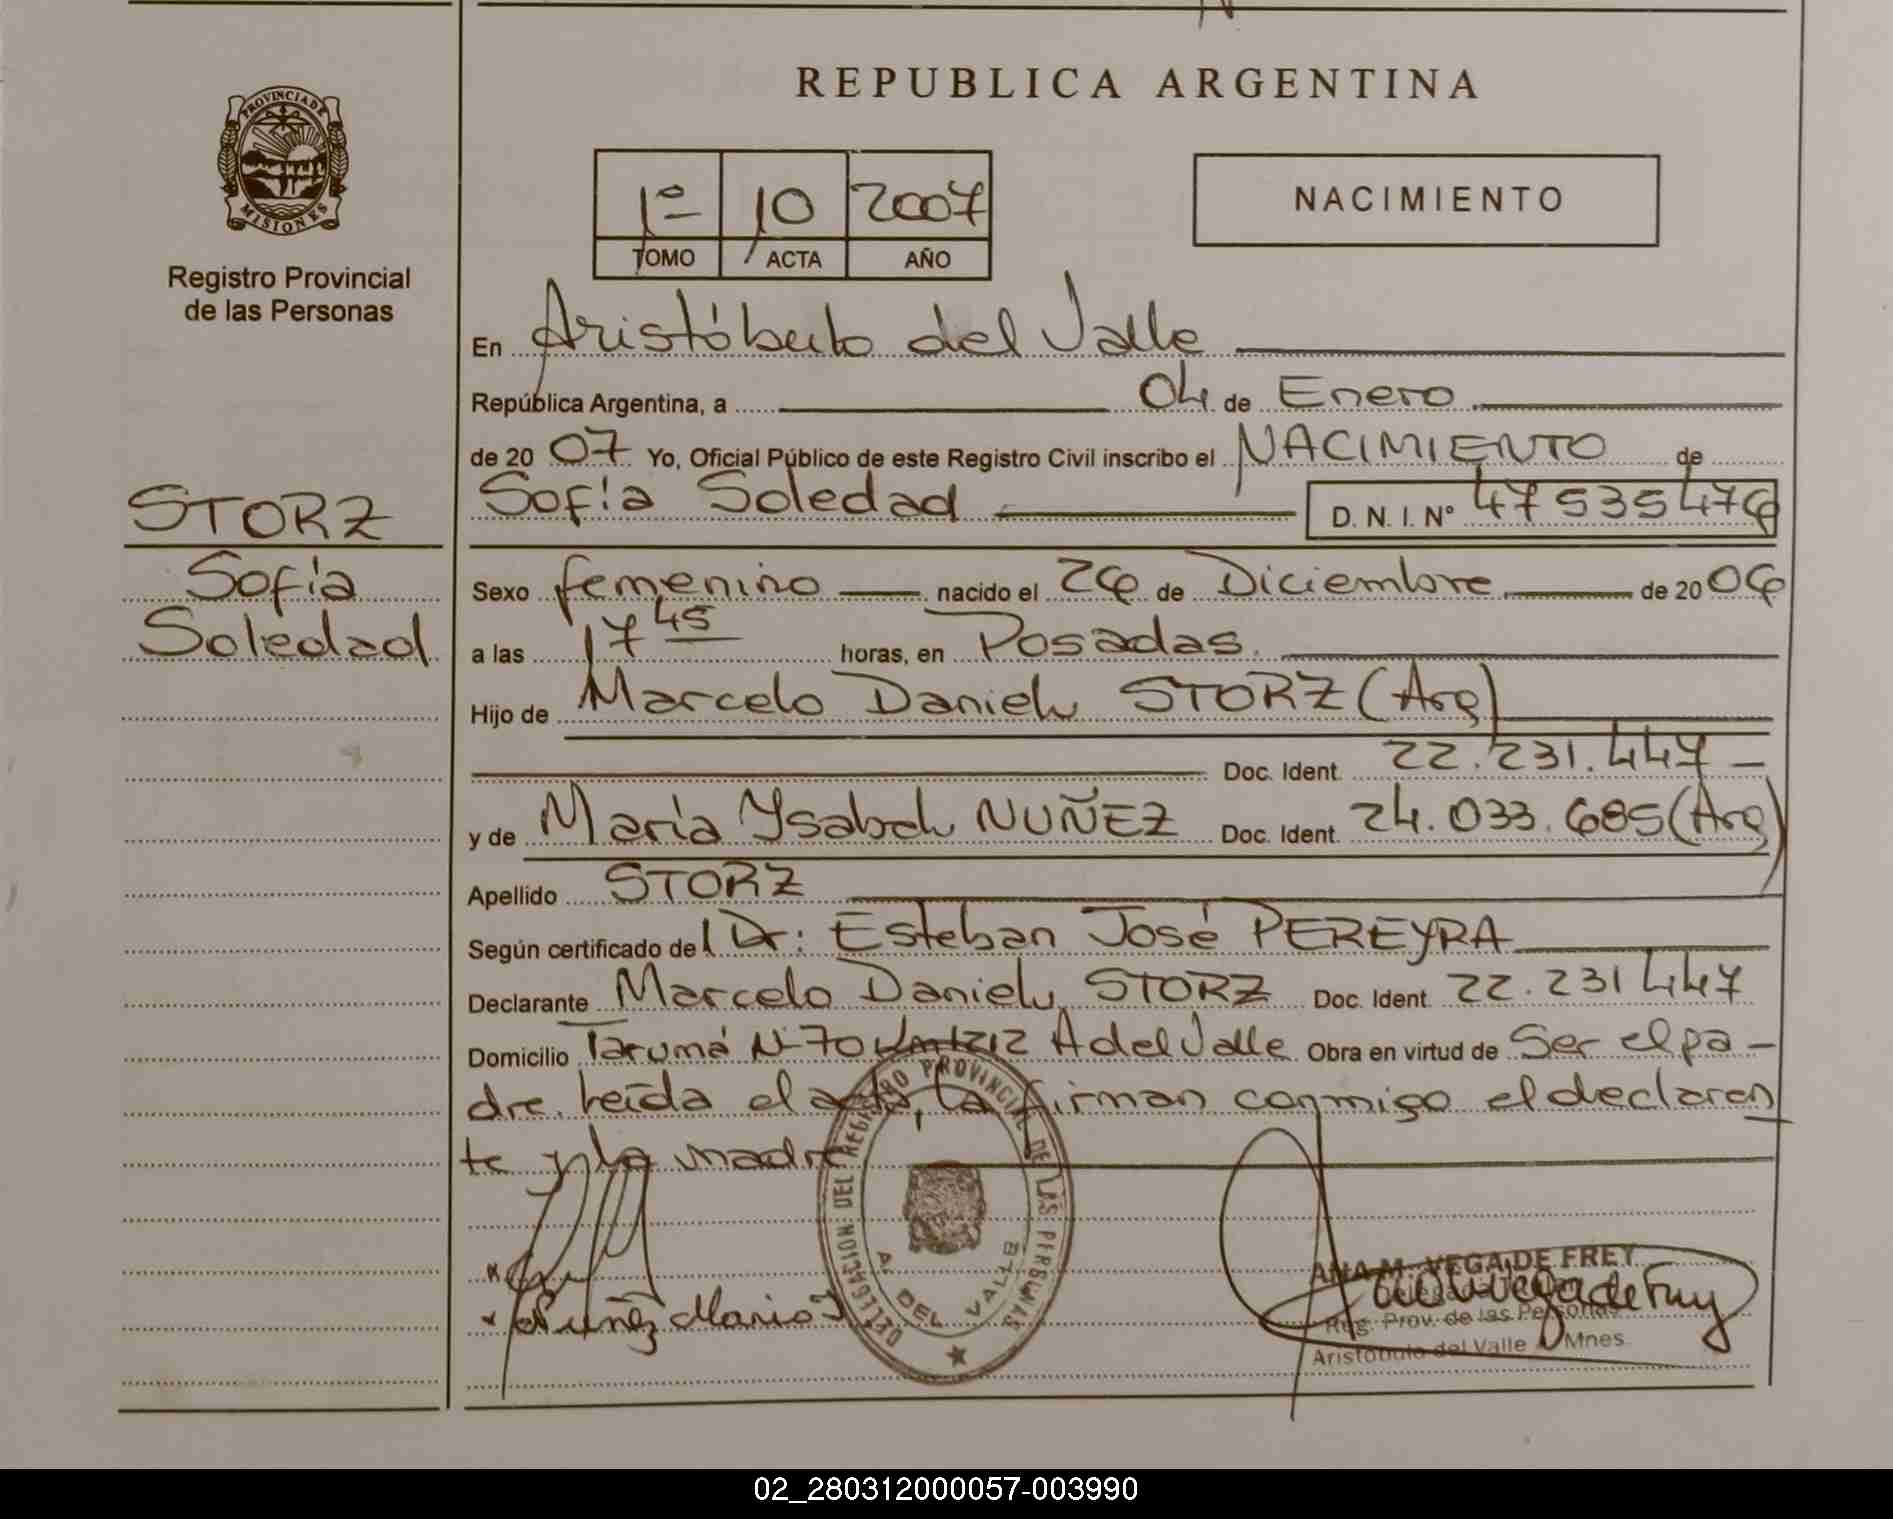 REPUBLICA ARGENTINA
PROVINCIA DE
MISIONES
Registro Provincial
de las Personas
1º 10 2007
TOMO ACTA AÑO
NACIMIENTO
En Aristóbulo del Valle
República Argentina, a 04 de Enero
de 2007 Yo, Oficial Público de este Registro Civil inscribo el NACIMIENTO de
Sofía Soledad D. N. I. Nº 47535476
STORZ
Sofía
Soledad
Sexo femenino nacido el 26 de Diciembre de 2006
a las 17 45 horas, en Posadas.
Hijo de Marcelo Daniel STORZ (Arg)
Doc. Ident. 22.231.447
y de María Ysabel NUÑEZ Doc. Ident. 24.033.685 (Arg)
Apellido STORZ
Según certificado del Dr: Esteban José PEREYRA
Declarante Marcelo Daniel STORZ Doc. Ident. 22.231 447
Domicilio Tarumá Nº 70 A del Valle Obra en virtud de Ser el pa-
dre. leída el acta, la firman conmigo el declaran
te y la madre
DELEGACION DEL REGISTRO PROVINCIAL DE LAS PERSONAS
A. DEL VALLE
Nuñez Maria Y
ANA M. VEGA DE FREY
Reg. Prov. de las Personas
Aristóbulo del Valle Mnes.
02_280312000057-003990